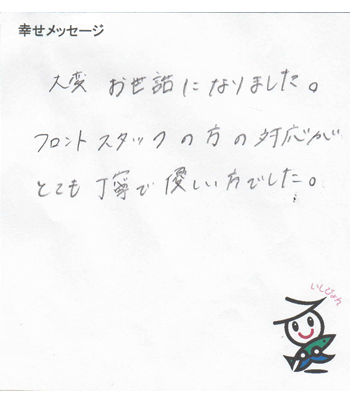 幸せメッセージ
大変 お世話になりました。
フロントスタックの方の対応が
とても丁寧で優しい方でした。
いしぴょん